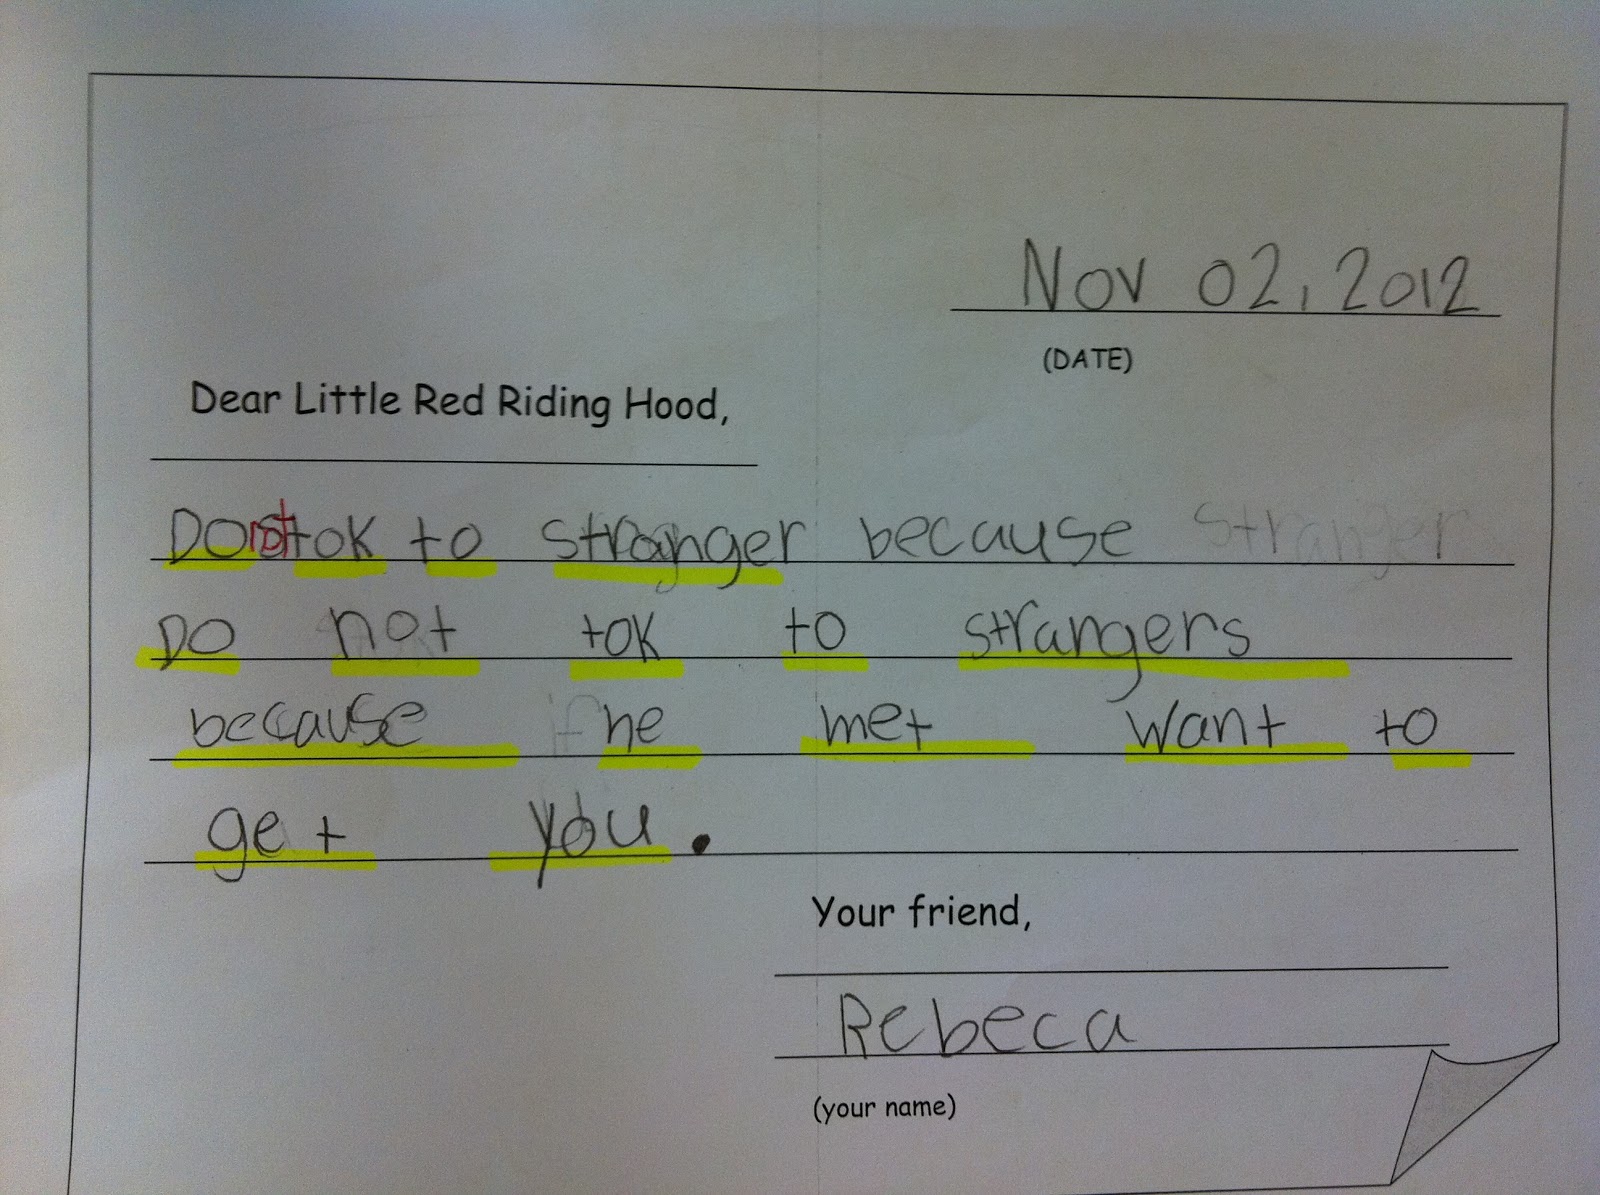 Nov 02, 2012
(DATE)
Dear Little Red Riding Hood,
Do not tok to stranger because stranger
Do not tok to strangers
because if he met want to
get you.
Your friend,
Rebeca
(your name)